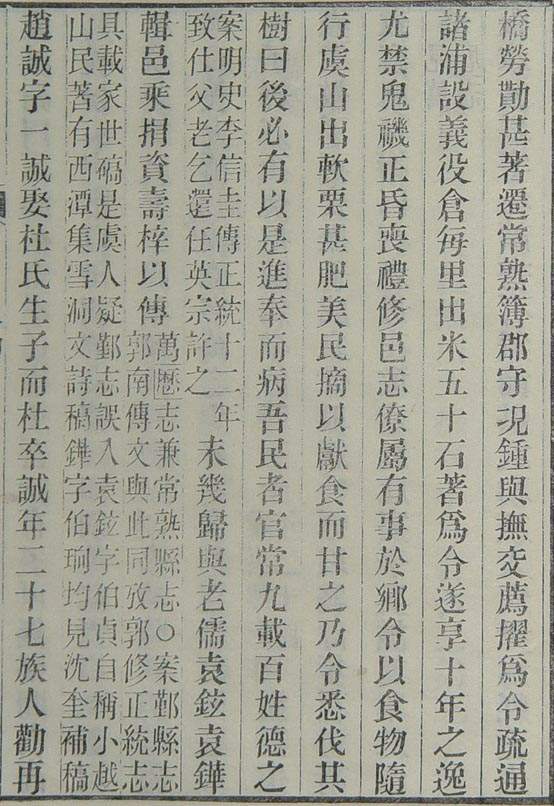 橋勞勩甚著遷常熟簿郡守況鍾與撫交薦擢爲令疏通
諸浦設義役倉每里出米五十石著爲令遂享十年之逸
尤禁鬼禨正昏喪禮修邑志僚屬有事於鄉令以食物隨
行虞山出軟栗甚肥美民摘以獻食而甘之乃令悉伐其
樹曰後必有以是進奉而病吾民者官常九載百姓德之
案明史李信圭傳正統十二年
致仕父老乞還任英宗許之
未幾歸與老儒袁鉉袁鏵
輯邑乘捐資壽梓以傳
萬歷志兼常熟縣志○案鄞縣志
郭南傳文與此同攷郭修正統志
具載家世碻是虞人疑鄞志誤入袁鉉字伯貞自稱小越
山民著有西潭集雪洞文詩稿鏵字伯珣均見沈奎補稿
趙誠字一誠娶杜氏生子而杜卒誠年二十七族人勸再